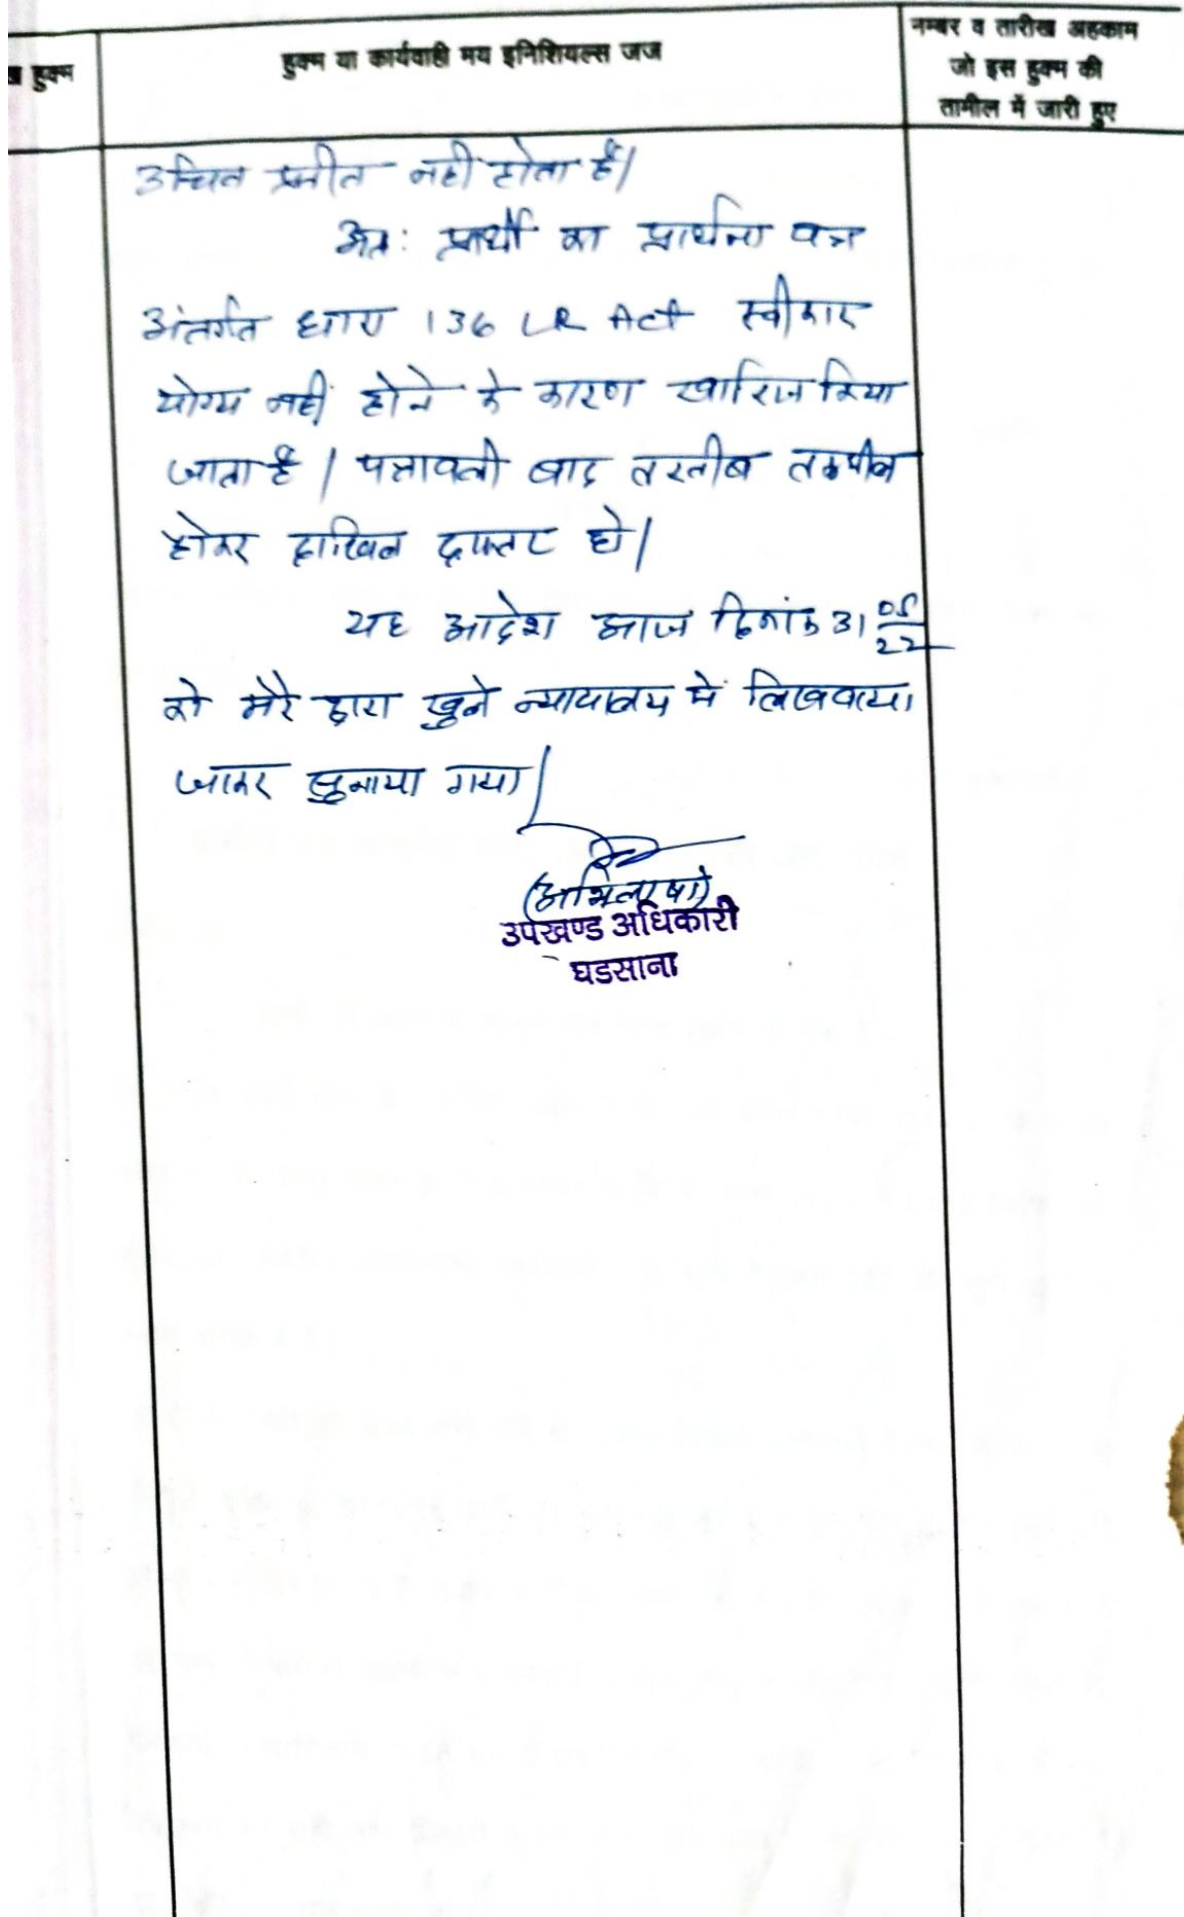 हुक्म
हुक्म या कार्यवाही मय इनिशियल्स जज
नम्बर व तारीख अहकाम
जो इस हुक्म की
तामील में जारी हुए
उचित प्रतीत नही होता है।
अतः प्रार्थी का प्रार्थना पत्र
अंतर्गत धारा 136 LR Act स्वीकार
योग्य नहीं होने के कारण खारिज किया
जाता है। पत्रावली बाद तरतीब तकमील
होकर दाखिल दफ्तर हो।
यह आदेश आज दिनांक 31 05/22
को मेरे द्वारा खुले न्यायालय में लिखवाया
जाकर सुनाया गया।
(अभिलाषा)
उपखण्ड अधिकारी
घडसाना